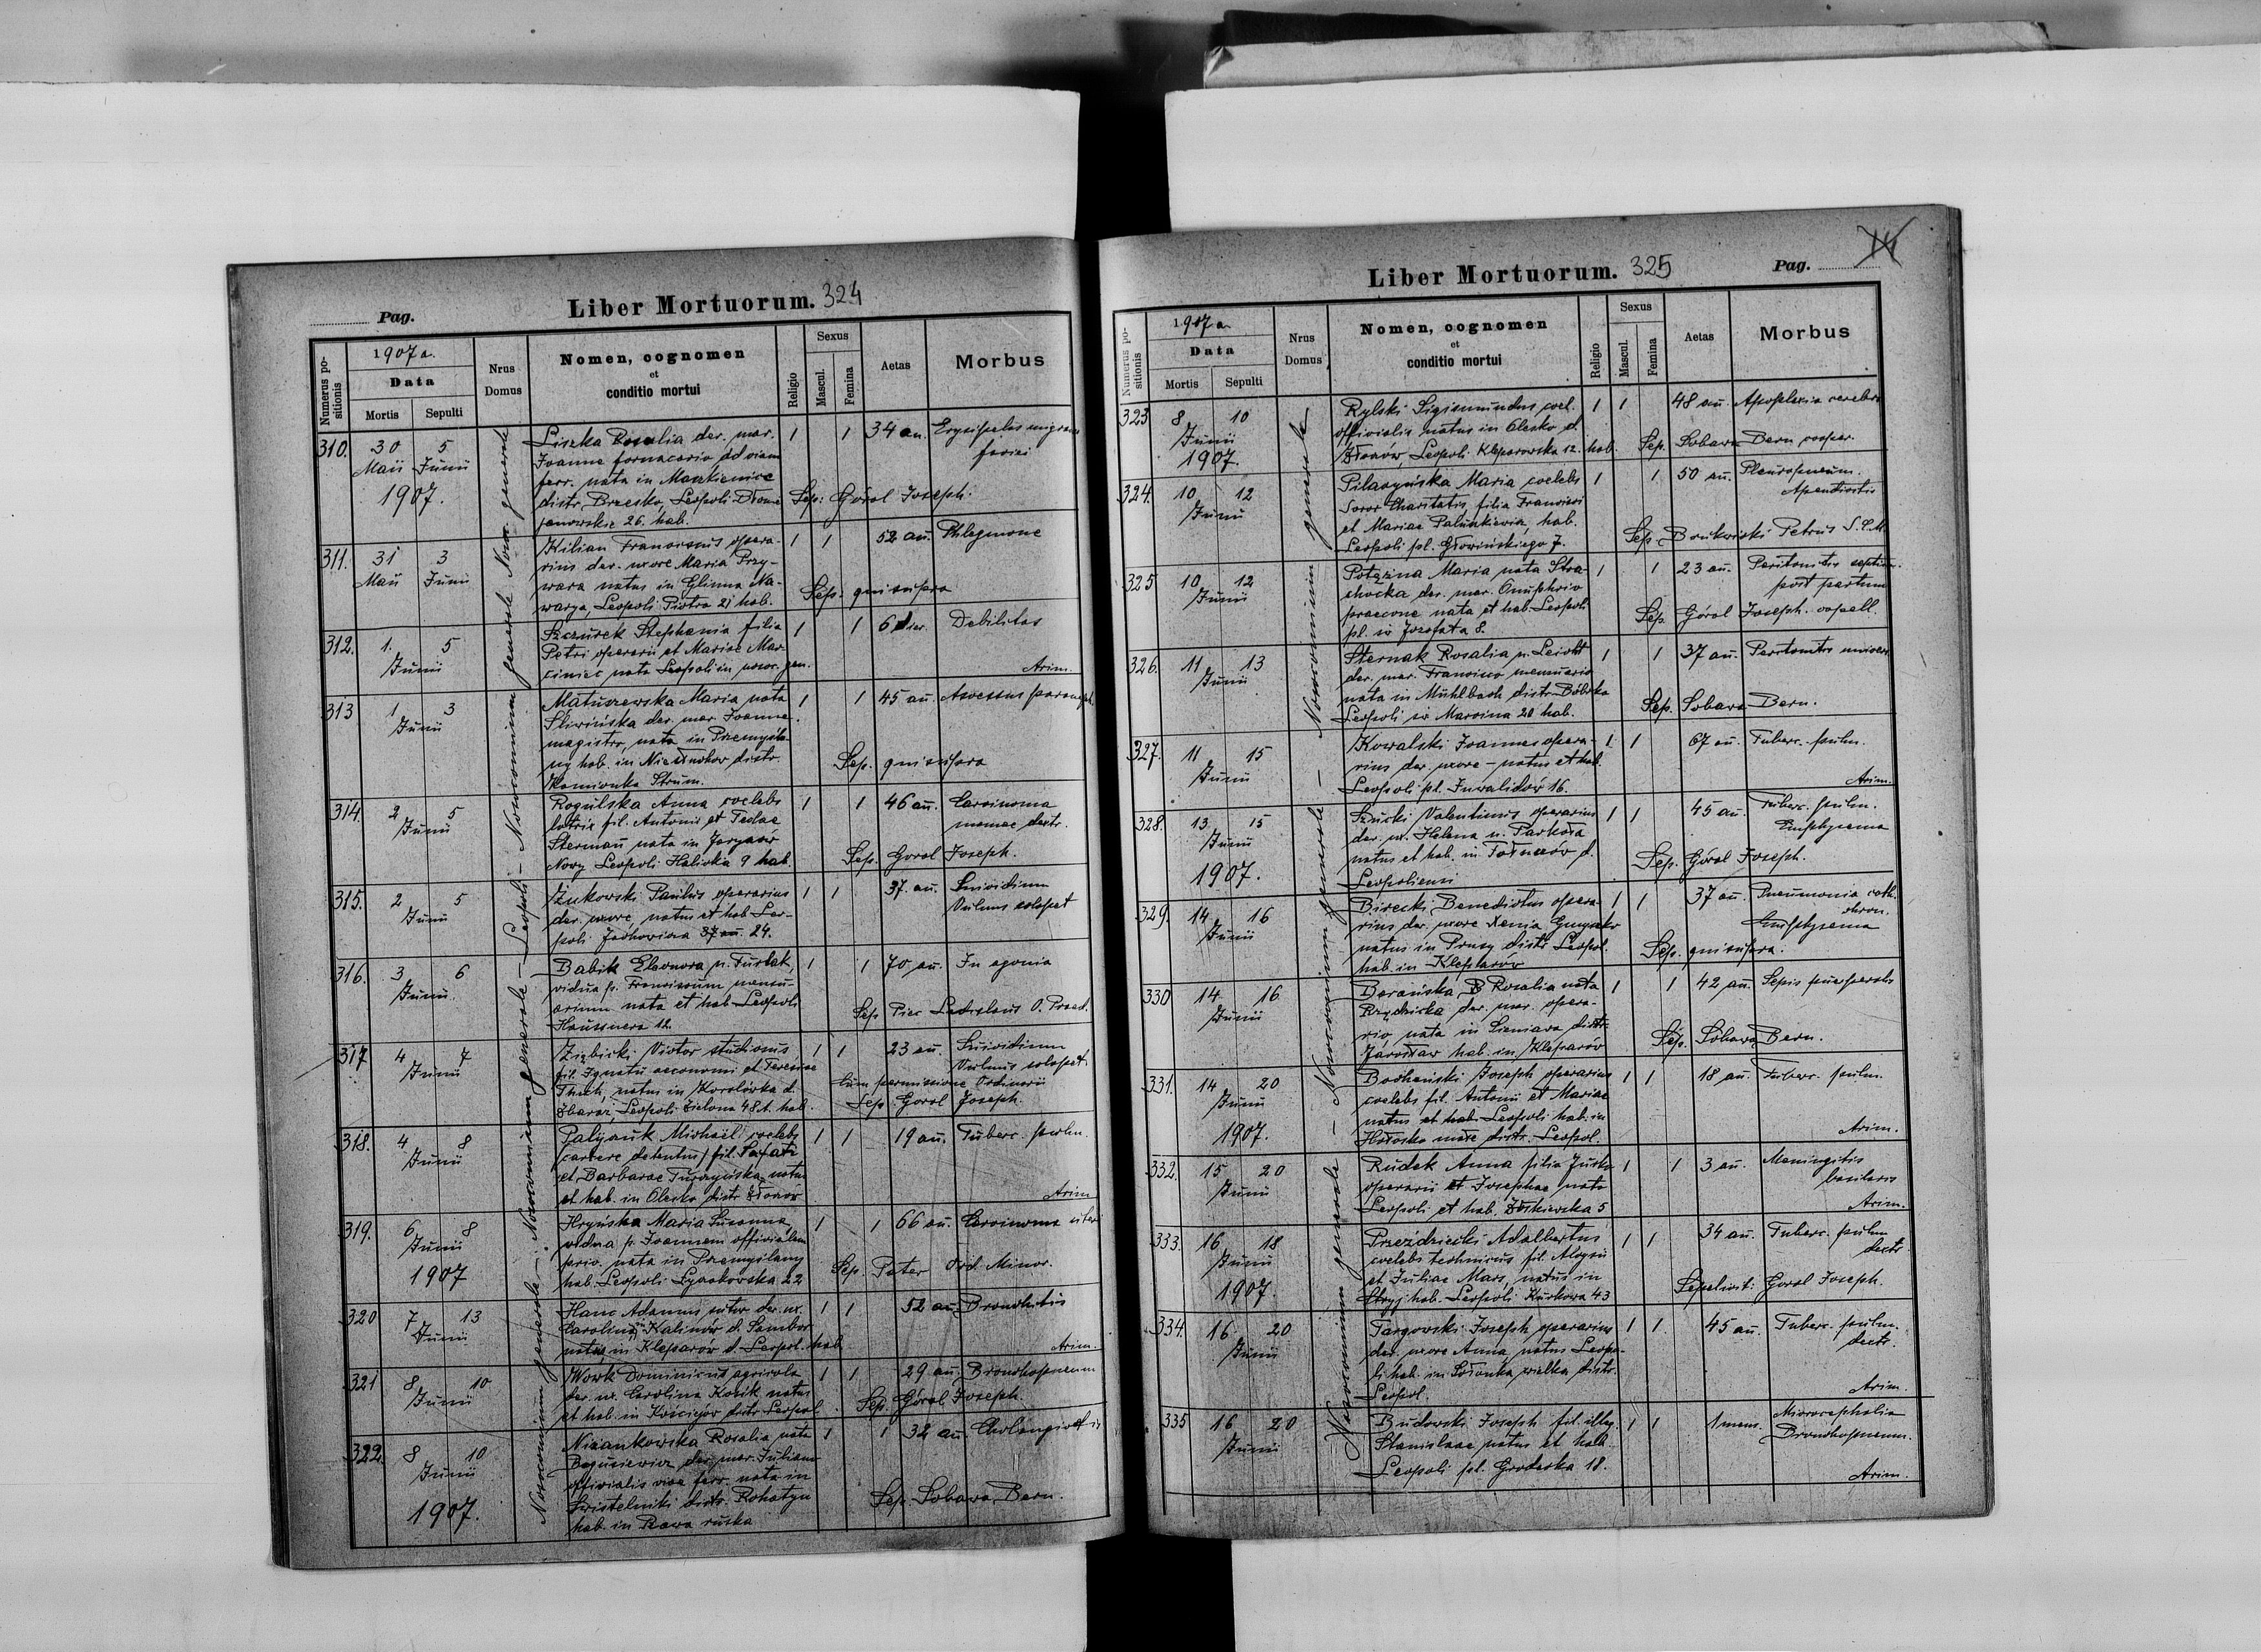 Pag.
Liber Mortuorum. 324
Numerus positionis
1907 a.
Data
Mortis Sepulti
Nrus Domus
Nomen, cognomen
et
conditio mortui
Religio
Sexus
Mascul. Femina
Aetas
Morbus
Nosocomium generale - Leopoli - Nosocomium generale
310. 30 Maii 5 Junii 1907.
Liszka Rosalia der. mar. 1 1 34 an. Erysipelas migrans
Joanne fornacario ad viam faciei
ferr. nata in
distr. Brzesko, Leopoli Sep: Góral Joseph.
janowskie 26. hab.
311. 31 Maii 3 Junii
Kilian Franciscus opera- 1 1 52 an. Phlegmone
rius der. uxore Maria Przy-
wara natus in Glinna Na-
warya, Leopoli Piotra 21 hab. Sep: qui supra
312. 1. 5 Junii
Szczurek Stephania filia 1 1 6 dier. Debilitas
Petri operarii et Mariae Mar-
ciniec nata Leopoli in nosoc. gen. Arim.
313 1 3 Junii
Matuszewska Maria nata 1 1 45 an.
Śliwińska der. mar. Joanne
magistro, nata in Przemyśla-
ny hab. in distr. Sep. qui supra
Kamionka Strum.
314. 2 5 Junii
Rogulska Anna coelebs 1 1 46 an. Carcinoma
fil. Antonii et Teclae mamae dextr.
nata in
Nowy Leopoli Halicka 9 hab. Sep. Goral Joseph.
315. 2 5 Junii
Żukowski Paulus operarius 1 1 37. an. Suicidium
der. uxore, natus et hab. Leo- Vulnus sclopet
poli Jachowicza 37 an. 24.
316. 3 6 Junii.
Babik Eleonora n. Furtak, 1 1 70 an. In agonia
vidua p. Franciscum mensu-
arium nata et hab. Leopoli Sep Piec Ladislaus O. Praed.
Haussnera 12.
317 4 7 Junii
Ziębicki Victor studiosus 1 1 23 an. Suicidium
fil. Ignatii oeconomi et Teresiae Vulnus sclopet.
natus in Korolówka d. Cum permissione Ordinarii
Zbaraż, Leopoli Zielona 48 A. hab. Sep. Goral Joseph.
318. 4 8 Junii
Michaël coelebs 1 1 19 an. Tuberc. pulm.
(carcere detentus) fil.
et Barbarae natus
et hab. in Olesko distr Złoczów Arim
319. 6 8 Junii 1907
Hryńska Maria Susanna, 1 1 66 an. Carcinoma uteri
vidua p. Joannem officialem
priv. nata in Przemyślany Sep. Pater Ord. Minor.
hab. Leopoli Łyczakowska 22
320 7 13 Junii
Hanc Adamus sutor der. ux. 1 1 52 an. Bronchitis
Carolina, in Kalinów d. Sambor
natus, in Kleparów d. Leopol. hab. Arim.
321 8 10 Junii
Wowk Dominicus agricola 1 1 29 an. Bronchopneum
der. ux. Carolina Kozik natus
et hab. in distr Leopol. Sep. Góral Joseph
322. 8 10 Junii 1907.
Niżankowska Rosalia nata 1 1 32 an.
der. mar. Juliano
officialis viae ferr. nata in
distr. Rohatyn Sep. Sobawa Bern.
hab. in Rawa ruska

Liber Mortuorum. 325
Pag. 14
Numerus positionis
1907 a.
Data
Mortis Sepulti
Nrus Domus
Nomen, cognomen
et
conditio mortui
Religio
Sexus
Mascul. Femina
Aetas
Morbus
Nosocomium generale - Nosocomium generale - Nosocomium generale
323 8 10 Junii 1907.
Rylski Sigismundus coel. 1 1 48 an. Apoplexia cerebri
officialis natus in Olesko d.
Złoczów, Leopoli Kleparowska 12. hab. Sep. Sobawa Bern cooper.
324. 10 12 Junii
Maria coelebs 1 1 50 an. Pleuropneum.
Soror Charitatis filia Francisci Apendicitis
et Mariae hab.
Leopoli pl. Głowińskiego 7. Sep. Petrus S. C. M.
325 10 12 Junii
Maria nata Stra- 1 1 23 an. Peritonitis septica
chocka der. mar. Onuphrio post partum
praecone nata et hab. Leopoli
pl. św Jozafata 8. Sep. Góral Joseph. capell.
326. 11 13 Junii
Sternak Rosalia n. Leicht 1 1 37 an. Peritonitis univers
der. mar. Francisco mensuario
nata in Mühlbach distr. Bóbrka
Leopoli św Marcina 20 hab. Sep. Sobawa Bern.
327. 11 15 Junii
Kowalski Joannes opera- 1 1 67 an. Tuberc. pulm.
rius der. uxore - natus et hab.
Leopoli pl. Inwalidów 16. Arim.
328. 13 15 Junii 1907.
Valentinus operarius 1 1 45 an. Tuberc. pulm.
der. ux. Helena n. Emphysema
natus et hab. in d.
Leopoliensi Sep. Góral Joseph.
329. 14 16 Junii
Birecki Benedictus opera- 1 1 37 an. Pneumonia cath.
rius der. uxore Xenia chron.
natus in Prusy distr. Leopol. Emphysema
hab. in Kleparów Sep. qui supra.
330 14 16 Junii
Barańska Rosalia nata 1 1 42 an. Sepsis puerperalis
der. mar. opera-
rio, nata in Sieniawa distr.
Jarosław hab. in Kleparów Sep. Sobawa Bern.
331. 14 20 Junii 1907.
Bocheński Joseph operarius 1 1 18 an. Tuberc. pulm.
coelebs fil. Antonii et Mariae
natus et hab. Leopoli hab. in
Hołosko małe distr. Leopol. Arim.
332. 15 20 Junii
Rudek Anna filia 1 1 3 an. Meningitis
operarii et Josephae nata basilaris
Leopoli et hab. Żółkiewska 5 Arim.
333. 16 18 Junii 1907.
Przezdziecki Adalbertus 1 1 34 an. Tuberc. pulm
coelebs technicus fil. Aloysii dextr.
et Juliae Mars, natus in
Stryj hab. Leopoli Kurkowa 43 Sepelivit: Goral Joseph.
334. 16 20 Junii
Targowski Joseph operarius 1 1 45 an. Tuberc. pulm.
der. uxore Anna, natus Leopo- dextr.
li hab. in Słonka wielka distr.
Leopol. Arim.
335 16 20 Junii
Budowski Joseph fil. illeg. 1 1 1 mens. Microcephalia
Stanislaae natus et hab. Bronchopneum.
Leopoli pl. Grodecka 18. Arim.